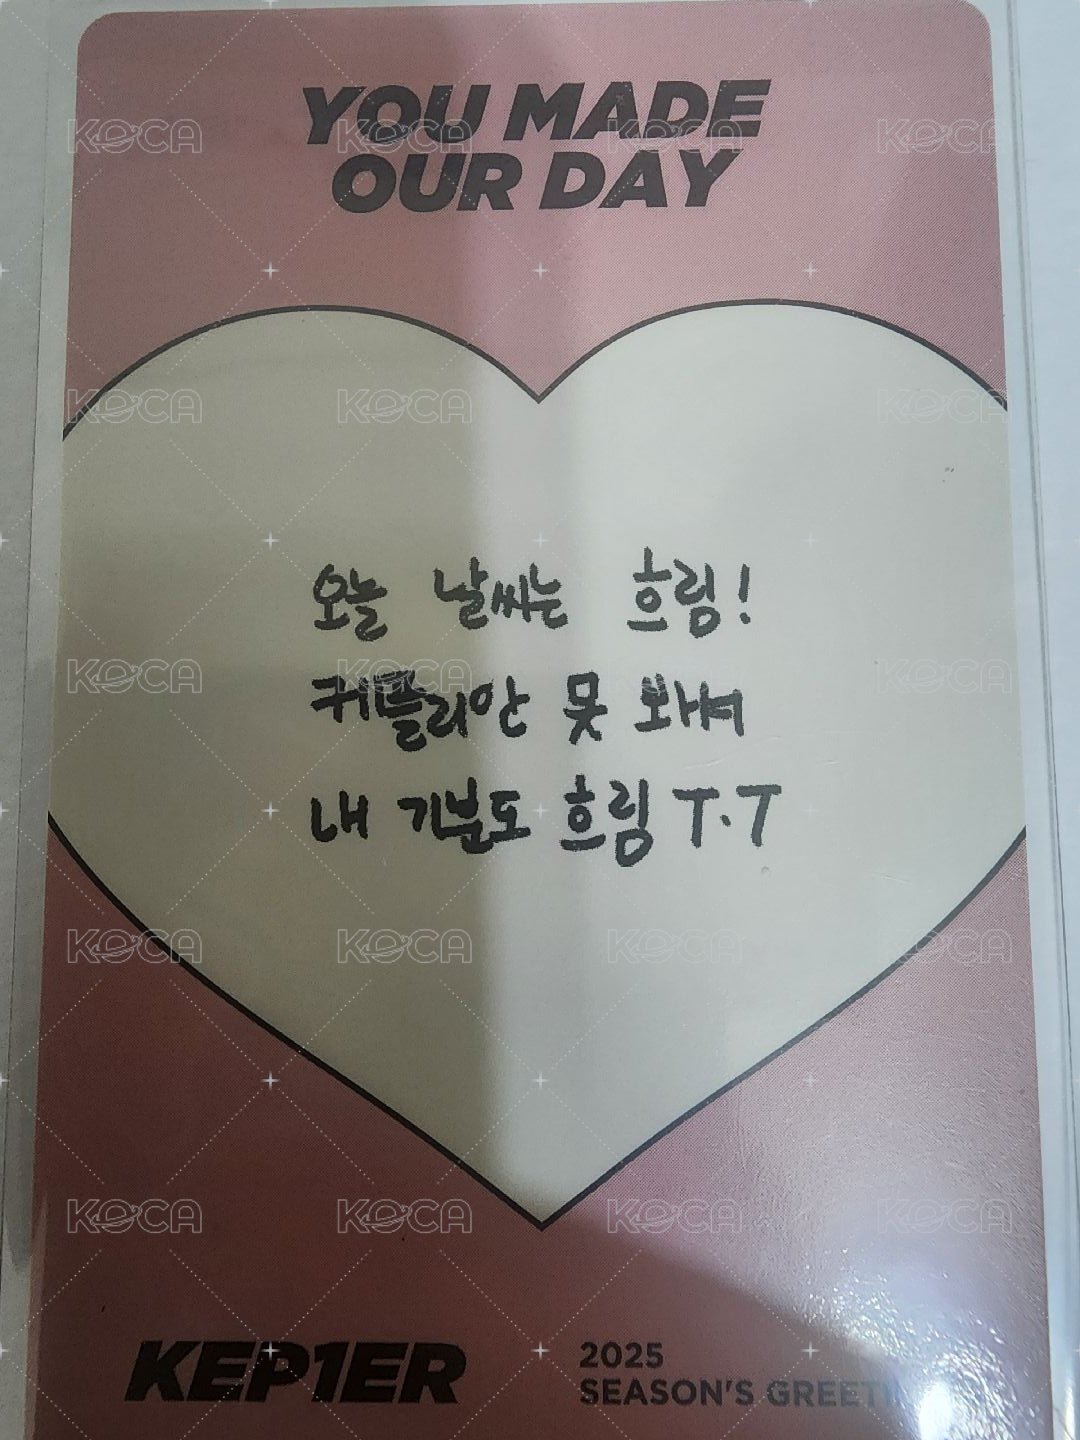 YOU MADE
OUR DAY
오늘 날씨는 흐림!
케플리안 못 봐서
내 기분도 흐림 T.T
KEP1ER
2025
SEASON'S
KOCA